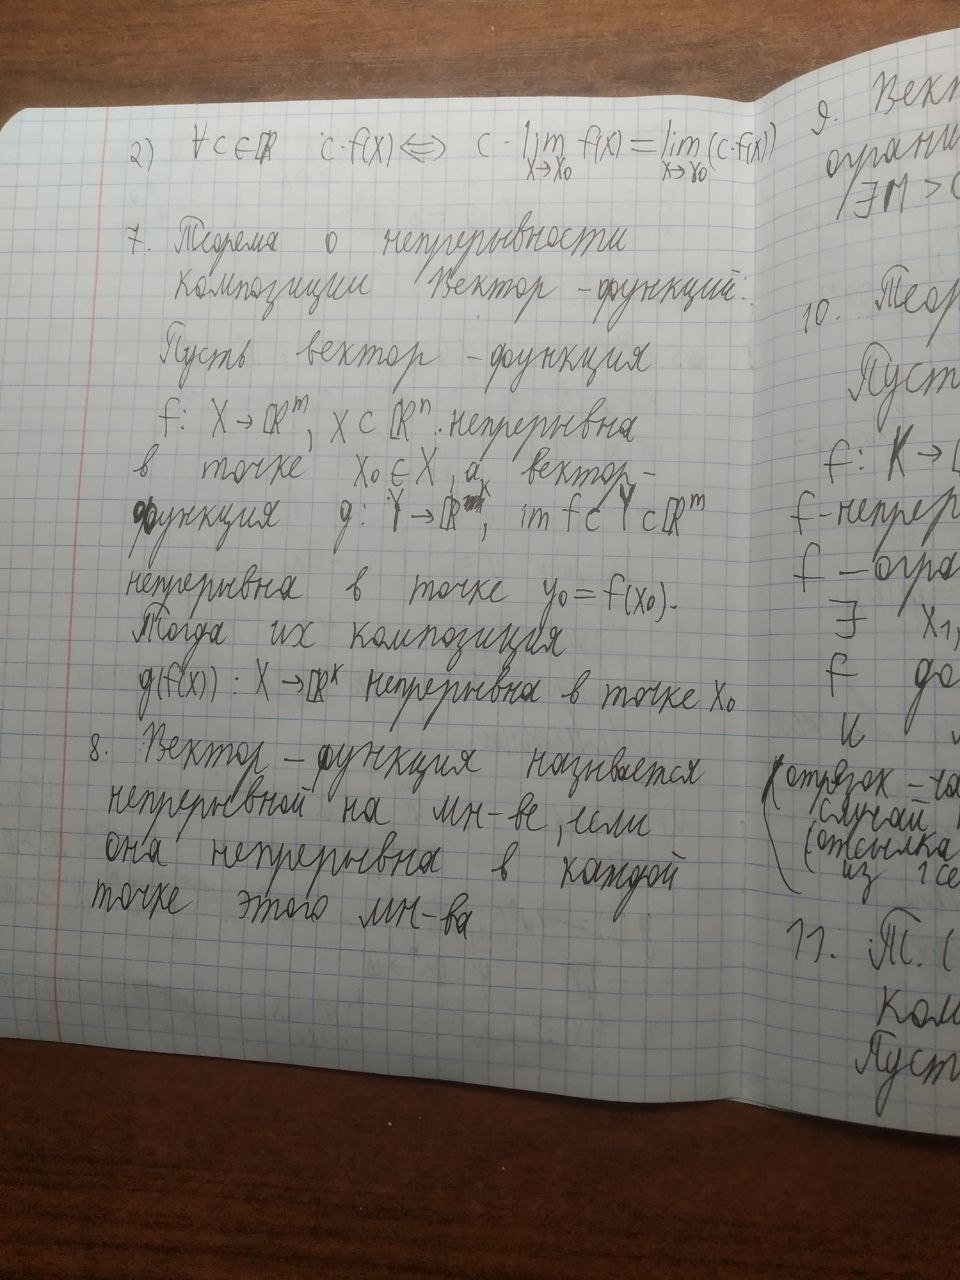 2) ∀c∈ℝ c·f(x) ⇔ c·lim f(x) = lim (c·f(x))
x→x₀ x→x₀
7. Теорема о непрерывности
композиции вектор-функций:
Пусть вектор-функция
f: X→ℝᵐ, X⊂ℝⁿ непрерывна
в точке x₀∈X, а вектор-
функция g: Y→ℝᵏ, im f⊂Y⊂ℝᵐ
непрерывна в точке y₀=f(x₀).
Тогда их композиция
g(f(x)): X→ℝᵏ непрерывна в точке x₀
8. Вектор-функция называется
непрерывной на мн-ве, если
она непрерывна в каждой
точке этого мн-ва
9. Вект
ограни
∃M>0
10. Теор
Пуст
f: K→
f-непрер
f-огра
∃ x₁,
f до
и
(отрезок - ча
случай
(отсылка
из 1 се
11. Т. (
ком
Пуст